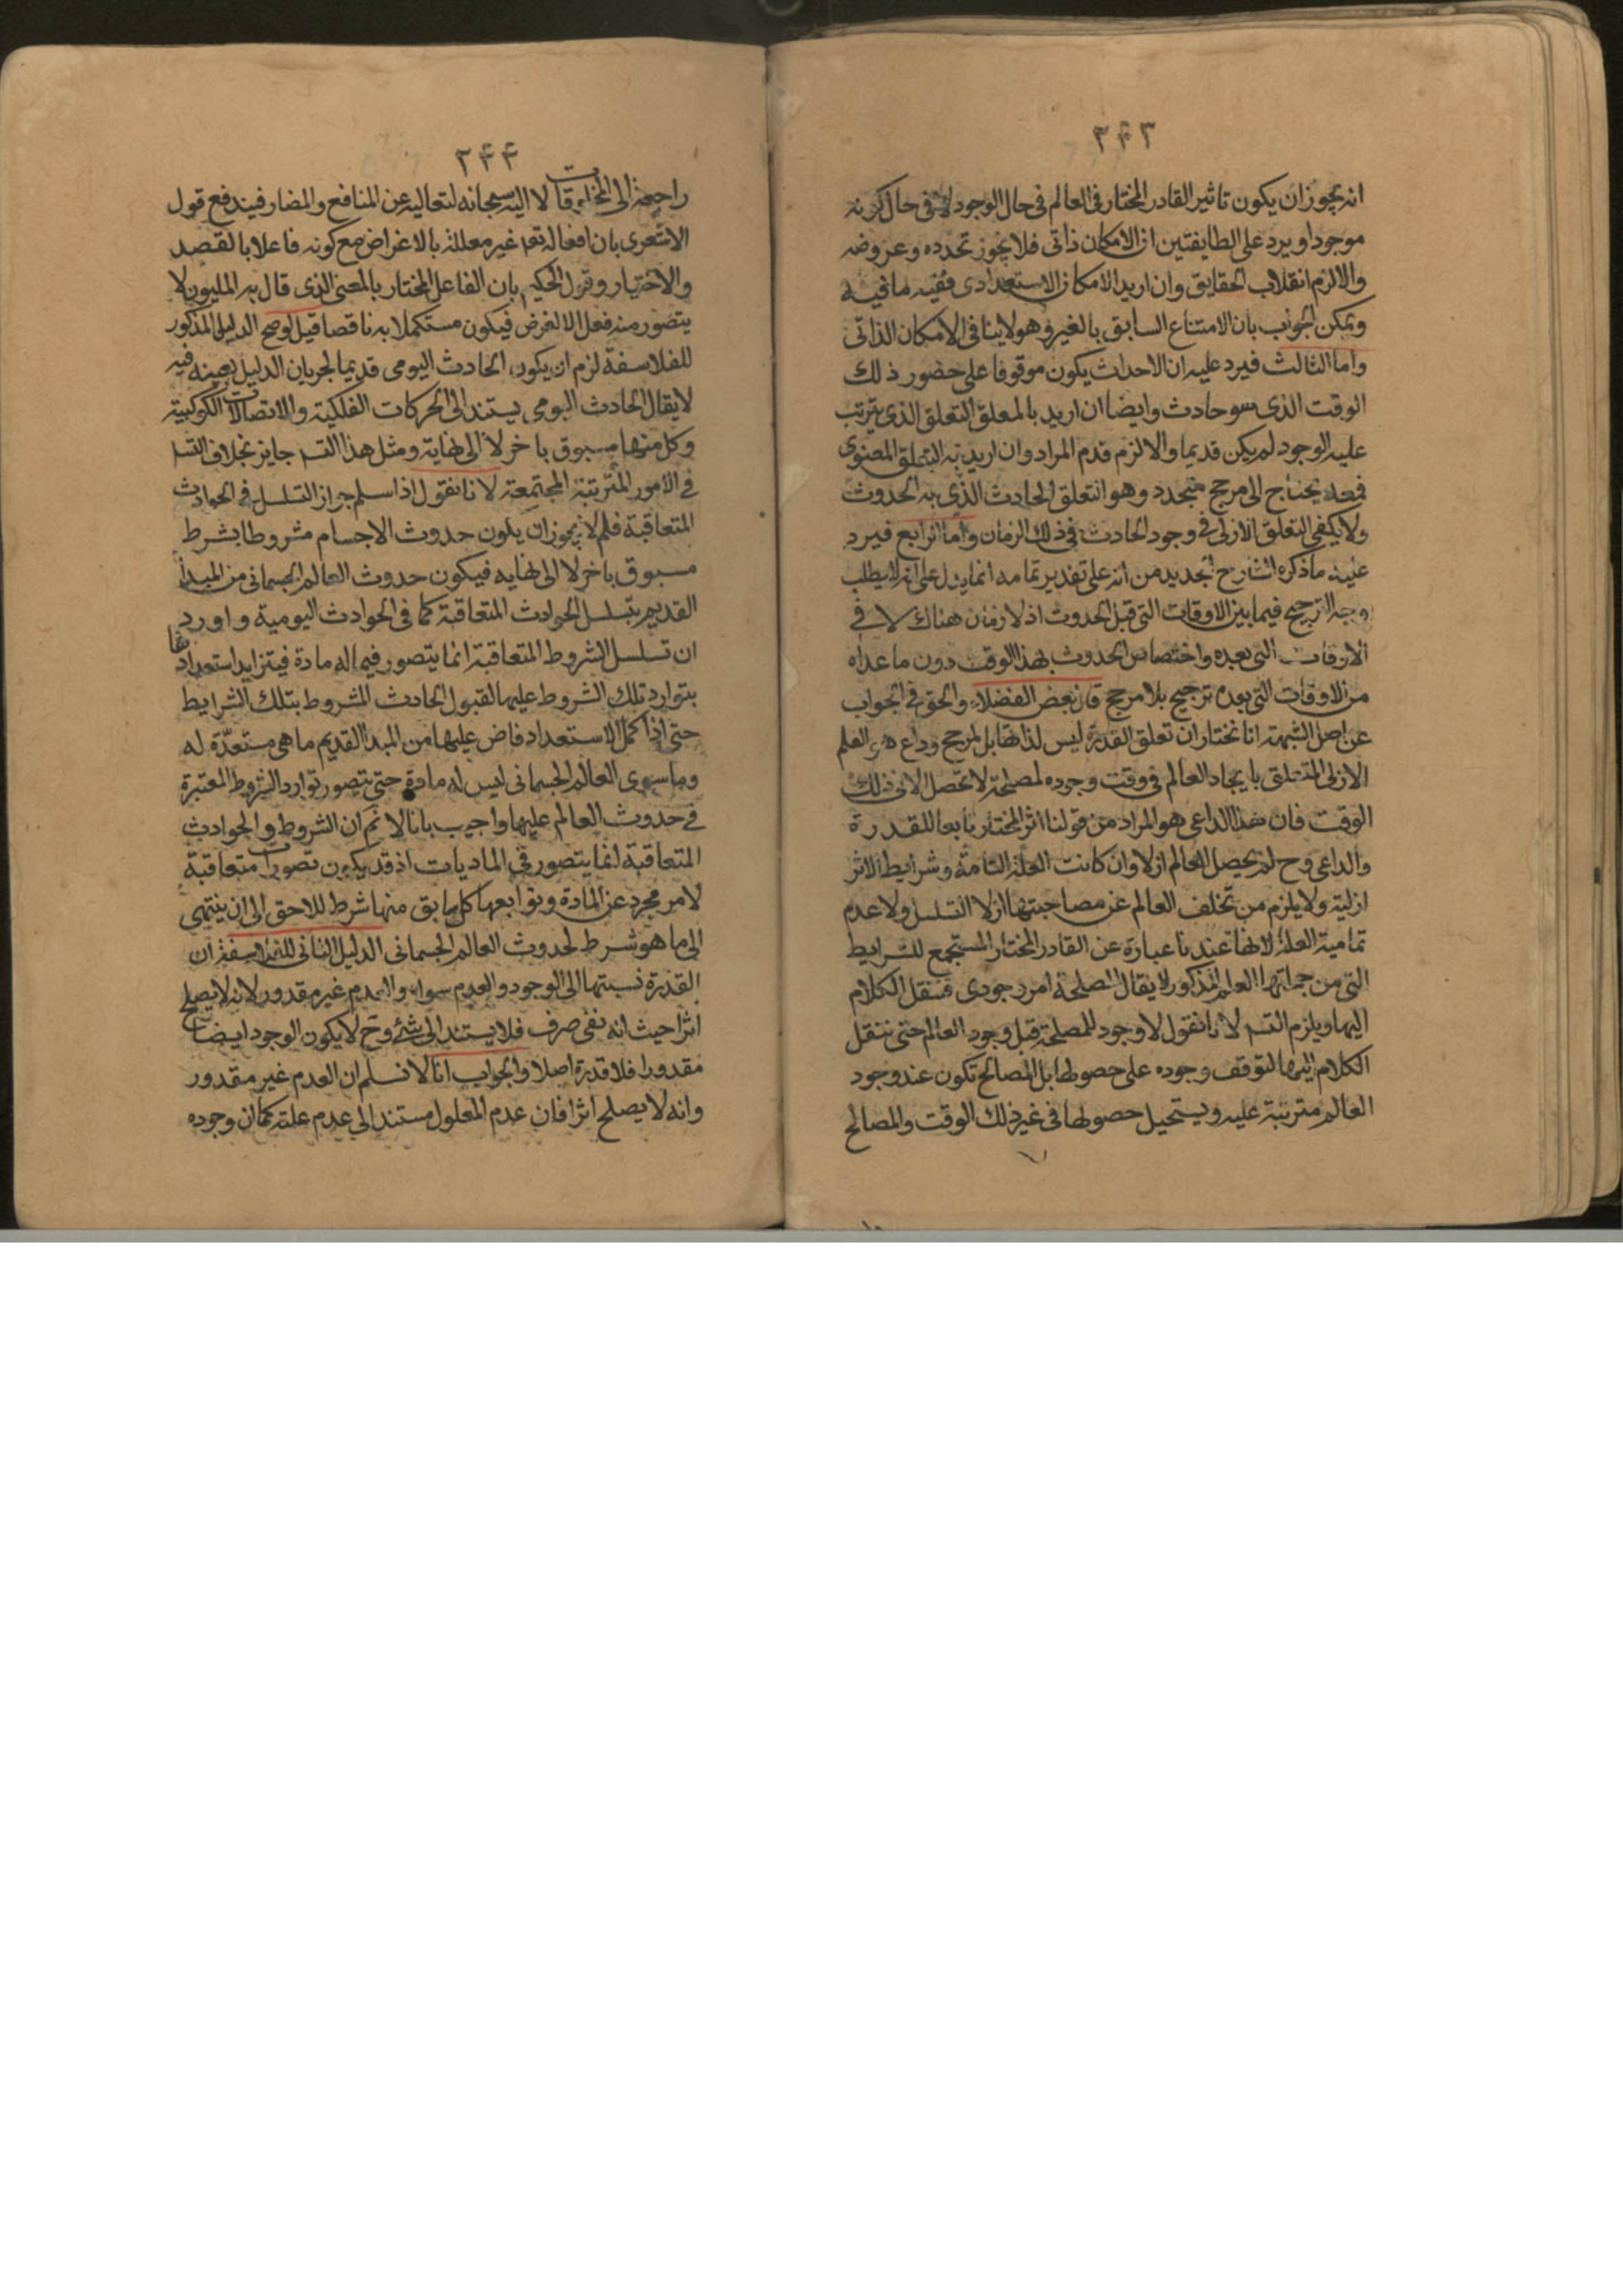 ٢٤٣
انه يجوز ان يكون تاثير القادر المختار فى العالم فى حال الوجود لا فى حال كونه
موجودا ويرد على الطايفتين ان الامكان ذاتى فلا يجوز تجدده وعروضه
والا لزم انقلاب الحقايق وان اريد الامكان الاستعدادى ففيه ما فيه
ويمكن الجواب بان الامتناع السابق بالغير وهو لا ينافى الامكان الذاتى
واما الثالث فيرد عليه ان الاحداث يكون موقوفا على حضور ذلك
الوقت الذى هو حادث وايضا ان اريد بالمعلق التعلق الذى يترتب
عليه الوجود لم يكن قديما والا لزم قدم المراد وان اريد به التعلق المعنوى
فمعه يحتاج الى مرجح متجدد وهو التعلق الحادث الذى به الحدوث
ولا يكفى التعلق الازلى فى وجود الحادث فى ذلك الزمان واما الرابع فيرد
عليه ما ذكره الشارح الجديد من انه على تقدير تمامه انما يدل على انه لا يطلب
وجه الترجيح فيما بين الاوقات التى قبل الحدوث اذ لا زمان هناك لا فى
الاوقات التى بعده واختصاص الحدوث بهذا الوقت دون ما عداه
من الاوقات التى بعده ترجيح بلا مرجح قال بعض الفضلاء والحق فى الجواب
عن اصل الشبهة انا نختار ان تعلق القدرة ليس لذاتها بل لمرجح وداع هو العلم
الازلى المتعلق بايجاد العالم فى وقت وجوده لمصلحة لا تحصل الا فى ذلك
الوقت فان هذا الداعى هو المراد من قولنا اثر المختار تابعا للقدرة
والداعى وح لم يحصل العالم ازلا وان كانت العلة التامة وشرايط الاثر
ازلية ولا يلزم من تخلف العالم عن مصاحبتها ازلا التسلسل ولا عدم
تمامية العلة لانها عندنا عبارة عن القادر المختار المستجمع للشرايط
التى من جملتها العلم المذكور لا يقال المصلحة امر وجودى فننقل الكلام
اليها ويلزم التسه لانا نقول لا وجود للمصلحة قبل وجود العالم حتى ننقل
الكلام اليها لتوقف وجوده على حصولها بل المصالح تكون عند وجود
العالم مترتبة عليه ويستحيل حصولها فى غير ذلك الوقت والمصالح
٢٤٤
راجعة الى المخلوقات لا اليه سبحانه لتعاليه عن المنافع والمضار فيندفع قول
الاشعرى بان افعاله تعه غير معللة بالاغراض مع كونه فاعلا بالقصد
والاختيار وقول الحكيم بان الفاعل المختار بالمعنى الذى قال به المليون لا
يتصور منه فعل الا لغرض فيكون مستكملا به ناقصا قيل لو صح الدليل المذكور
للفلاسفة لزم ان يكون الحادث اليومى قديما لجريان الدليل بعينه فيه
لا يقال الحادث اليومى يستند الى الحركات الفلكية والاتصالات الكوكبية
وكل منها مسبوق باخر لا الى نهاية ومثل هذا التسه جايز بخلاف التسه
فى الامور المترتبة المجتمعة لانا نقول اذا سلم جواز التسلسل فى الحوادث
المتعاقبة فلم لا يجوز ان يكون حدوث الاجسام مشروطا بشرط
مسبوق باخر لا الى نهايه فيكون حدوث العالم الجسمانى من المبدأ
القديم بتسلسل الحوادث المتعاقبة كما فى الحوادث اليومية واورد
ان تسلسل الشروط المتعاقبة انما يتصور فيما له مادة فيتزايد استعدادها
بتوارد تلك الشروط عليها لقبول الحادث المشروط بتلك الشرايط
حتى اذا كمل الاستعداد فاض عليها من المبدا القديم ما هى مستعدة له
وما سوى العالم الجسمانى ليس له مادة حتى يتصور توارد الشروط المعتبرة
فى حدوث العالم عليها واجيب بانا لا نم ان الشروط والحوادث
المتعاقبة انما يتصور فى الماديات اذ قد يكون تصورات متعاقبة
لامر مجرد عن المادة وتوابعها كل سابق منها شرط للاحق الى ان ينتهى
الى ما هو شرط لحدوث العالم الجسمانى الدليل الثانى للفلاسفة ان
القدرة نسبتها الى الوجود والعدم سواء والعدم غير مقدور لانه لا يصلح
اثرا حيث انه نفى صرف فلا يستند الى شئ وح لا يكون الوجود ايضا
مقدورا فلا قدرة اصلا والجواب انا لا نسلم ان العدم غير مقدور
وانه لا يصلح اثرا فان عدم المعلول مستند الى عدم علته كما ان وجوده